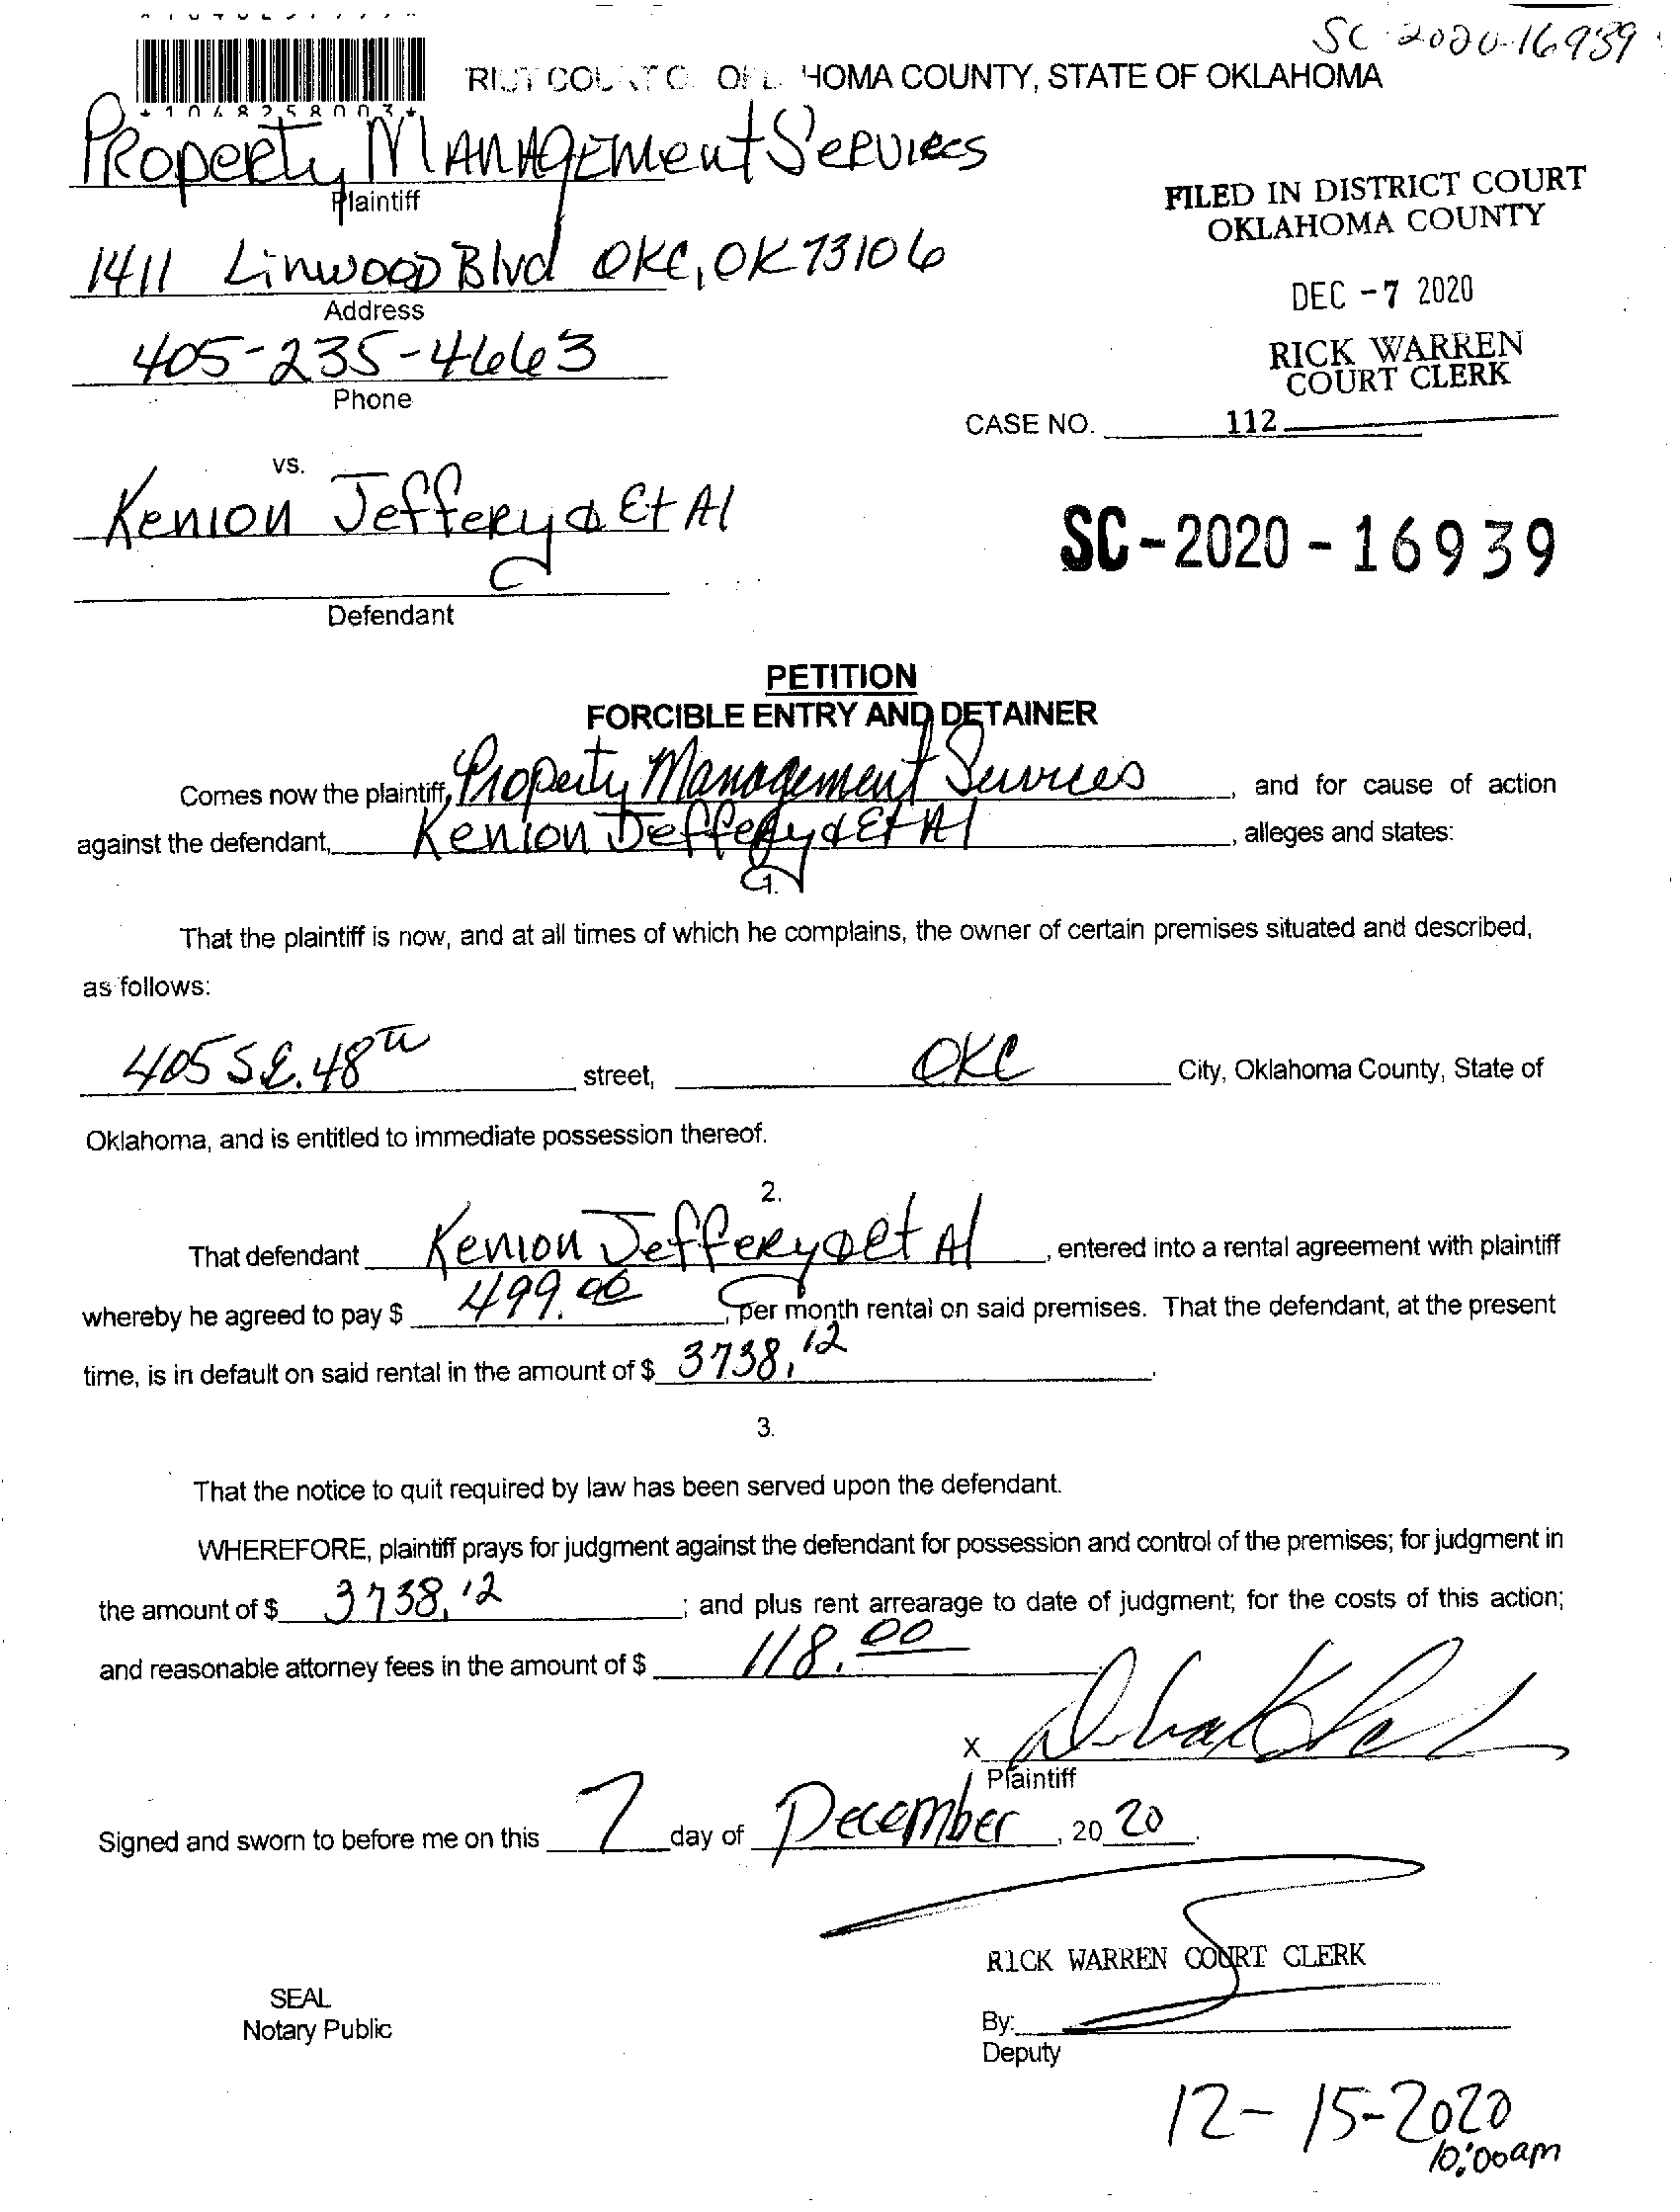 SC-2020-16939
*1048258003*
COUNTY, STATE OF OKLAHOMA
Property Management Services
Plaintiff
FILED IN DISTRICT COURT
OKLAHOMA COUNTY
1411 Linwood Blvd OKC, OK 73106
Address
DEC -7 2020
405-235-4663
Phone
RICK WARREN
COURT CLERK
CASE NO. 112
vs.
Kenion Jeffery & Et Al
SC-2020-16939
Defendant
PETITION
FORCIBLE ENTRY AND DETAINER
Comes now the plaintiff, Property Management Services, and for cause of action
against the defendant, Kenion Jeffery & Et Al, alleges and states:
1.
That the plaintiff is now, and at all times of which he complains, the owner of certain premises situated and described,
as follows:
405 S.E. 48th street, OKC City, Oklahoma County, State of
Oklahoma, and is entitled to immediate possession thereof.
2.
That defendant Kenion Jeffery & et Al, entered into a rental agreement with plaintiff
whereby he agreed to pay $ 499.00, per month rental on said premises. That the defendant, at the present
time, is in default on said rental in the amount of $ 3738.12.
3.
That the notice to quit required by law has been served upon the defendant.
WHEREFORE, plaintiff prays for judgment against the defendant for possession and control of the premises; for judgment in
the amount of $ 3738.12; and plus rent arrearage to date of judgment; for the costs of this action;
and reasonable attorney fees in the amount of $ 118.00
X
Plaintiff
Signed and sworn to before me on this 7 day of December, 2020.
RICK WARREN COURT CLERK
SEAL
Notary Public
By:
Deputy
12-15-2020
10:00am